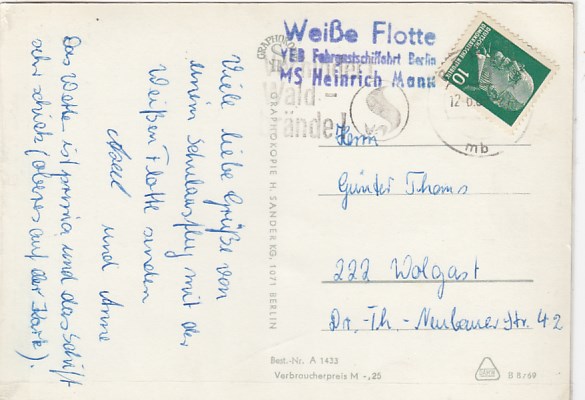 Viele liebe Grüße von
einem Schulausflug mit der
Weißen Flotte senden
Axel und Anne
Das Wetter ist prima und das Schiff
sehr schick (oberes auf der Karte).
GRAPHOKOPIE H. SANDER KG, 1071 BERLIN
Weiße Flotte
VEB Fahrgastschiffahrt Berlin
MS Heinrich Mann
Wald-
brände!
10
12
mb
Herrn
Günter Thoms
222 Wolgast
Dr.-Th.-Neubauer Str. 42
Best.-Nr. A 1433
Verbraucherpreis M -,25
B 8/69